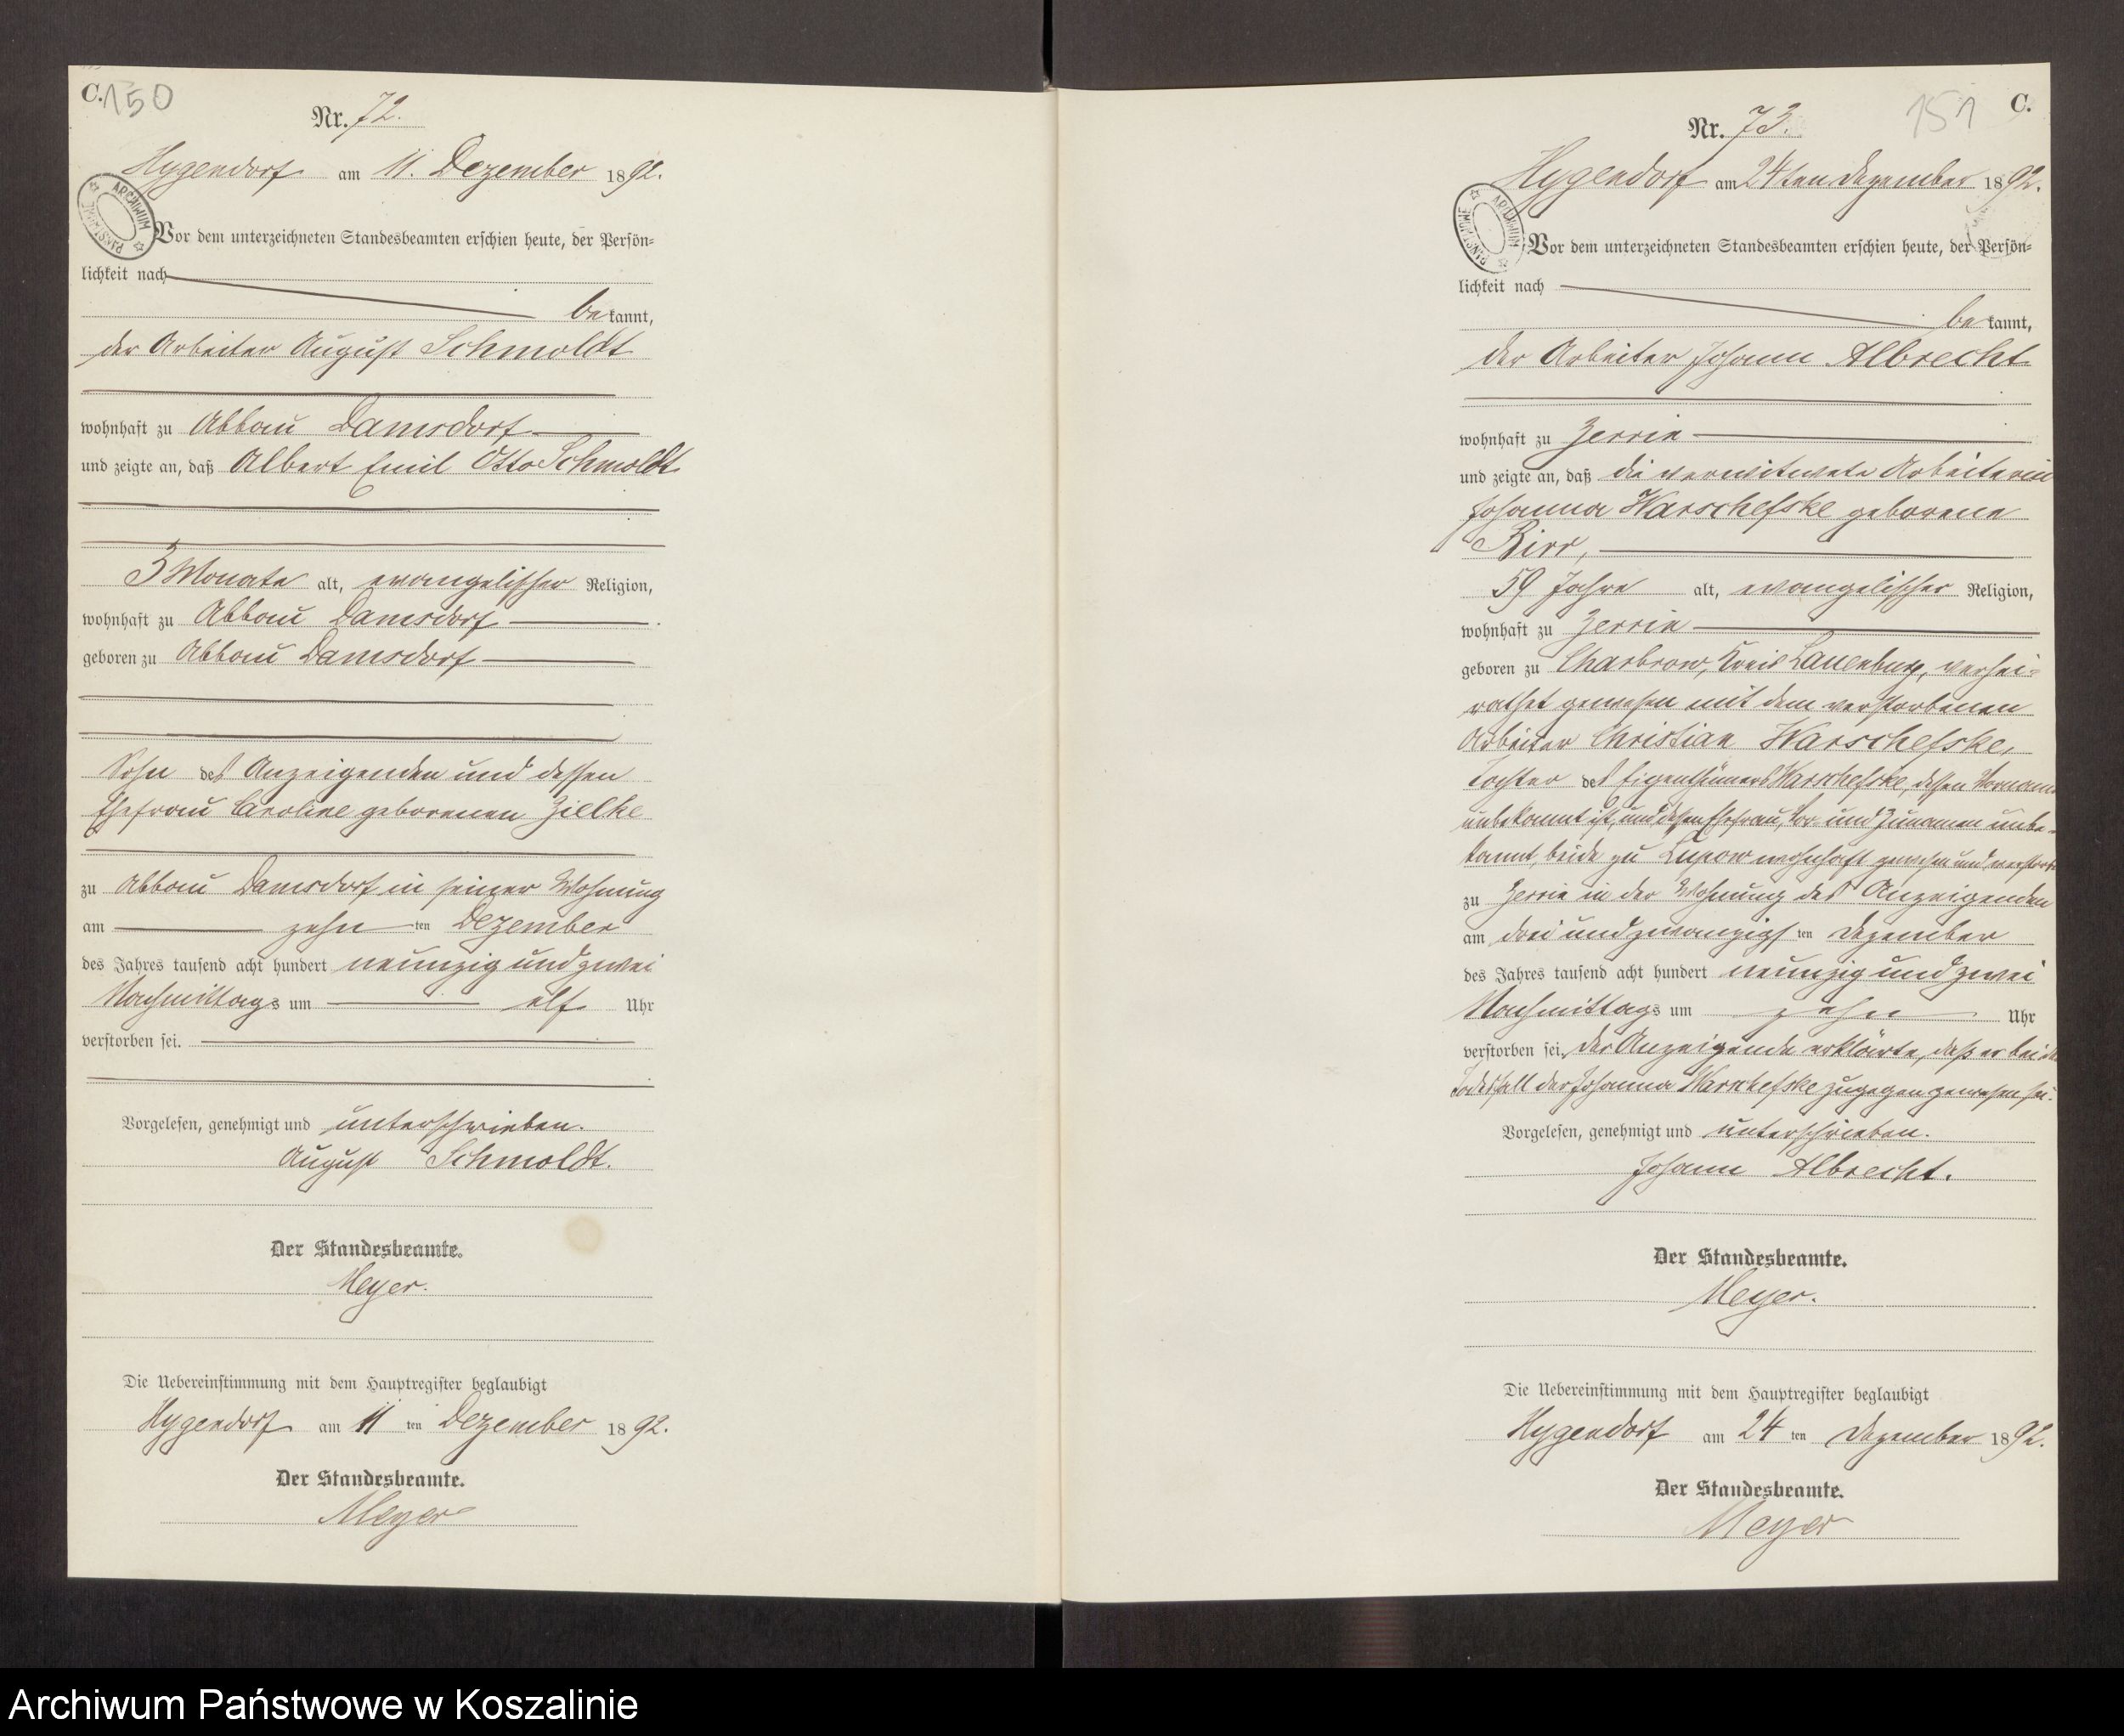 C. 150
Nr. 72.
Hygendorf am 11. Dezember 1892.
ARCHIWUM PAŃSTWOWE
Vor dem unterzeichneten Standesbeamten erschien heute, der Persön=
lichkeit nach
bekannt,
der Arbeiter August Schmoldt
wohnhaft zu Abbau Damsdorf
und zeigte an, daß Albert Emil Otto Schmoldt
3 Monate alt, evangelischer Religion,
wohnhaft zu Abbau Damsdorf
geboren zu Abbau Damsdorf
Sohn des Anzeigenden und dessen
Ehefrau Caroline geborenen Zielke
zu Abbau Damsdorf in seiner Wohnung
am zehn ten Dezember
des Jahres tausend acht hundert neunzig und zwei
Nachmittags um elf Uhr
verstorben sei.
Vorgelesen, genehmigt und unterschrieben.
August Schmoldt.
Der Standesbeamte.
Meyer.
Die Uebereinstimmung mit dem Hauptregister beglaubigt
Hygendorf am 11 ten Dezember 1892.
Der Standesbeamte.
Meyer
151 C.
Nr. 73.
Hygendorf am 24ten Dezember 1892.
ARCHIWUM PAŃSTWOWE
Vor dem unterzeichneten Standesbeamten erschien heute, der Persön=
lichkeit nach
bekannt,
der Arbeiter Johann Albrecht
wohnhaft zu Zerrin
und zeigte an, daß die verwitwete Arbeiterin
Johanna Warschefske geborene
Birr,
59 Jahre alt, evangelischer Religion,
wohnhaft zu Zerrin
geboren zu Charbrow, Kreis Lauenburg, verhei-
rathet gewesen mit dem verstorbenen
Arbeiter Christian Warschefske,
Tochter des Eigenthümers Warschefske, dessen Vorname
unbekannt ist, und dessen Ehefrau, Vor und Zunamen unbe-
kannt, beide zu Lupow wohnhaft gewesen und
zu Zerrin in der Wohnung des Anzeigenden
am drei und zwanzigs ten Dezember
des Jahres tausend acht hundert neunzig und zwei
Nachmittags um zehn Uhr
verstorben sei, der Anzeigende erklärte, daß er bei
Todesfall der Johanna Warschefske zugegen gewesen sei.
Vorgelesen, genehmigt und unterschrieben.
Johann Albrecht.
Der Standesbeamte.
Meyer.
Die Uebereinstimmung mit dem Hauptregister beglaubigt
Hygendorf am 24 ten Dezember 1892.
Der Standesbeamte.
Meyer
Archiwum Państwowe w Koszalinie